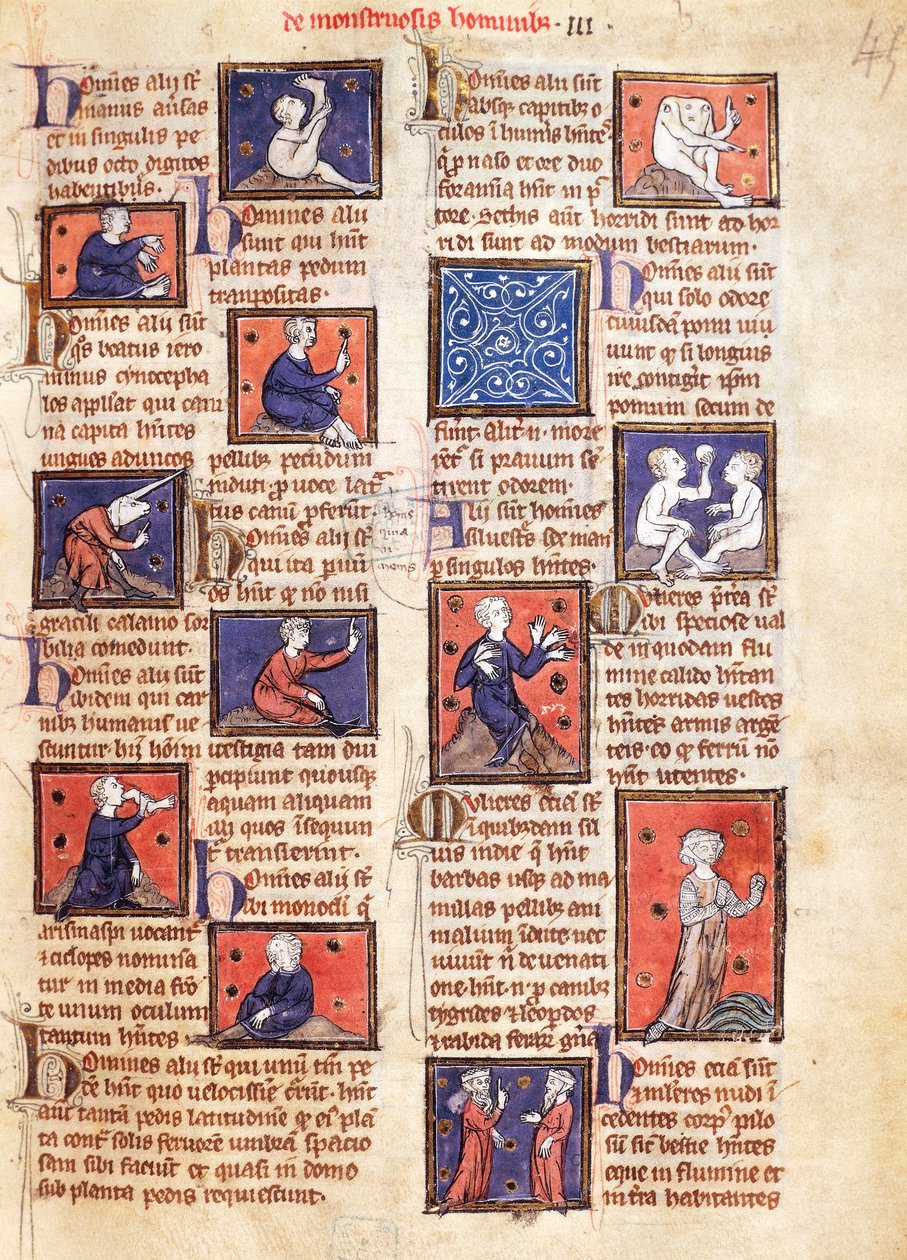 de monstruosis hominibz · III ·
45
Homines alij st
manus auisas
et in singulis pe
dibus octo digitos
habentibus ·
Homines alij
sunt qui hnt
plantas pedum
transpositas ·
Homines alij sunt
qs beatus iero
nimus cynocepha
los appllat qui cani
na capita hntes
ungues aduncos
pellibz pecudum
induti · p uoce lat
tus canum pferut ·
Homines alij st
qui ita puu
os hnt q no nisi
gracili calamo sor
bilia comedunt ·
Homines alij sunt
ibidem qui car
nibz humanis ue
scuntur · hij hoim uestigia tam diu
pcipiunt quousqz
aquam aliquam
illi quos isequun
tr transierint ·
Homines alij st
ibi monocli q
arismaspi uocant
i ciclopes nomina
tur in media fro
te unum oculum
tantum hntes
Homines alij st qui unum tm pe
de hnt quo uelocissime curut · hnt
aut tantam pedis latitudine q ei pla
ta cont solis feruorem umbram spacio
sam sibi faciut et quasi in domo
sub planta pedis requiescunt ·
Homines alij sunt
absqz capitibz o
culos i humis hntes
q p naso et ore duo
foramina hnt in p
ctore · Sethis aut horridi sunt ad hor
ridi sunt ad modum bestiarum ·
Homines alij sunt
qui solo odore
cuiusdam pomi uiu
uunt q si longius
ire contigit ipm
pomum secum de
ferunt · Alit n · more
rent si prauum se
tirent odorem ·
Alij sunt homines
siluestres sex man
p singulos hntes ·
Mulieres ptea st
ibi speciose ual
de in quodam flu
mine calido habitan
tes horridas uestes
hntes armis argen
teis · eo q ferru no
hnt utentes ·
Mulieres eciam st
i quibusdam sil
uis indie q hnt
barbas usqz ad ma
millas pellibz ani
malium indute nec
uiuunt n de uenati
one · hnt · n · p canibz
tygrides & leopardos
& rabida ferarum gna
Homines eciam sunt
& mulieres nudi i
cedentes corpus pilo
sum sicut bestie hntes
eque in flumine et
in terra habitantes